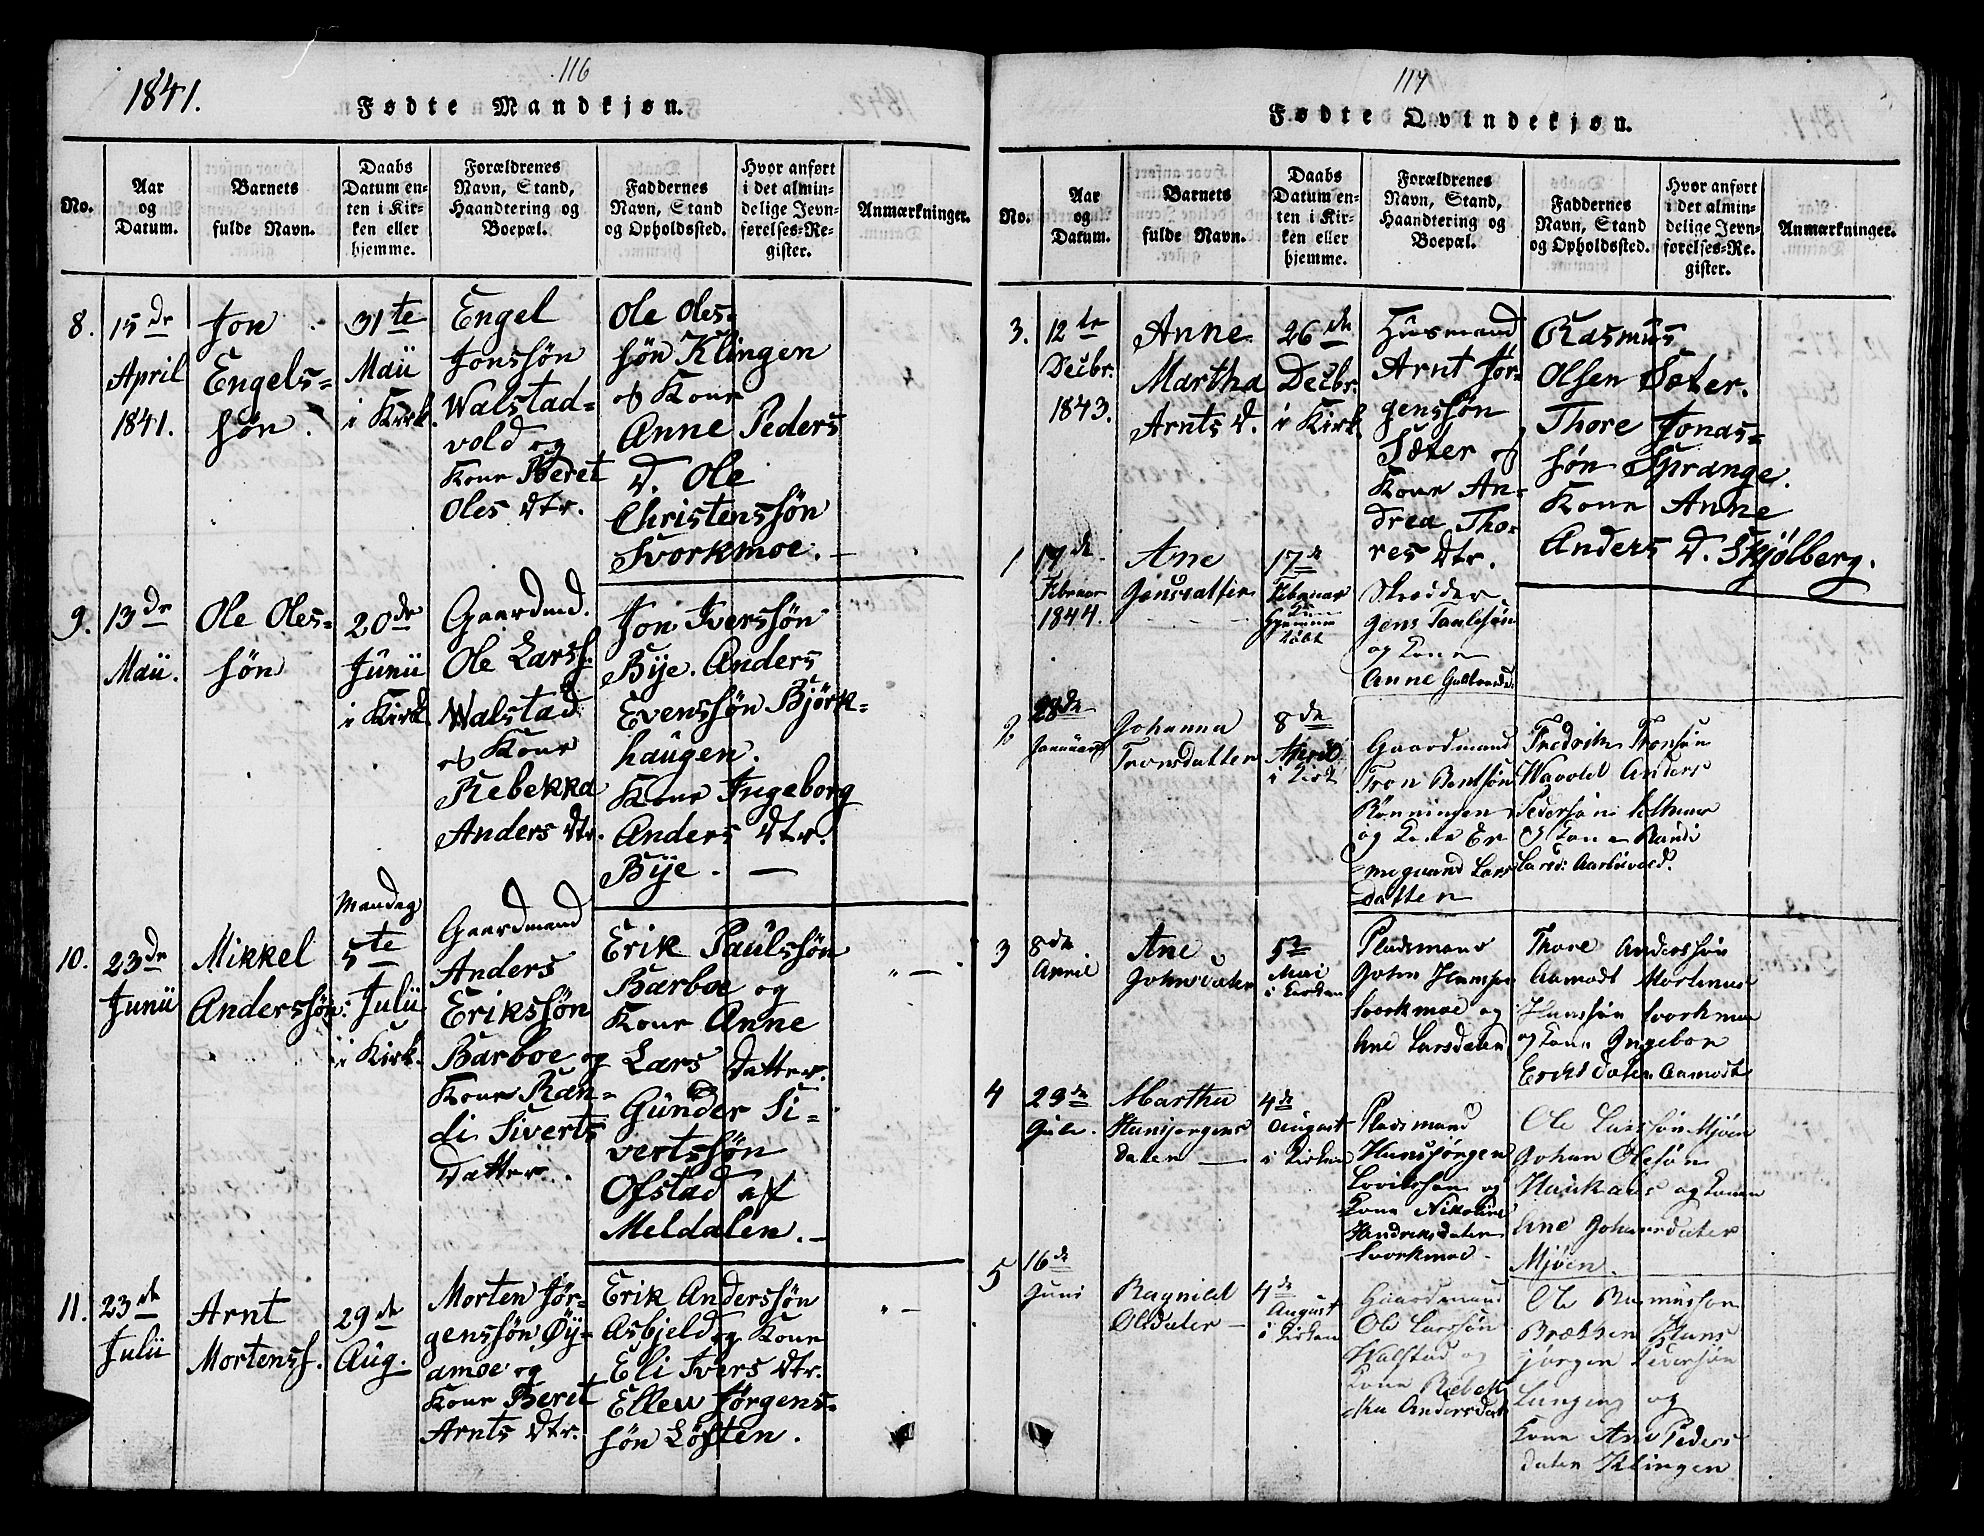 116
1841.
Fødte Mandkjøn.
No.
Aar
og
Datum.
Barnets
fulde Navn.
Daabs
Datum en-
ten i Kir-
ken eller
hjemme.
Forældrenes
Navn, Stand,
Haandtering og
Boepæl.
Faddernes
Navn, Stand
og Opholdssted.
Hvor anført
i det almin-
delige Jevn-
førelses-Re-
gister.
Anmærkninger.
8.
15de
April
1841.
Jon
Engels=
søn.
31te
Maii
i Kirk.
Engel
Jonssøn
Walstad=
vold og
Kone Beret
Oles Dtr.
Ole Oles=
søn Klingen
og Kone
Anne Peders
D. Ole
Christenssøn
Svorkmoe. —
9.
13de
Maii.
Ole Oles=
søn
20de
Junii
i Kirk.
Gaardmd.
Ole Larss.
Walstad
og Kone
Rebekka
Anders Dtr.
Jon Iverssøn
Bye. Anders
Evenssøn Bjørk=
haugen.
Kone Ingeborg
Anders Dtr.
Bye. —
10.
23de
Junii
Mikkel
Anderssøn.
Mandag
5te
Julii
i Kirk.
Gaardmand
Anders
Erikssøn
Barboe og
Kone Ran=
di Siverts
Datter.
Erik Paulssøn
Barboe og
Kone Anne
Lars Datter.
Gunder Si=
vertssøn
Ofstad af
Meldalen. —
" —
11.
23de
Julii
Arnt
Mortenss.
29de
Aug.
Morten Jør=
genssøn Øy=
amoe og
Kone Beret
Arnts Dtr.
Erik Anderssøn
Asbjeld og Kone
Eli Ivers Dtr.
Ellew Jørgens=
søn Løften.
" —
117
Fødte Qvindekjøn.
No.
Aar
og
Datum.
Barnets
fulde Navn.
Daabs
Datum en-
ten i Kir-
ken eller
hjemme.
Forældrenes
Navn, Stand,
Haandtering og
Boepæl.
Faddernes
Navn, Stand
og Opholdssted.
Hvor anført
i det almin-
delige Jevn-
førelses-Re-
gister.
Anmærkninger.
3.
12te
Decbr.
1843.
Anne
Martha
Arnts D.
26de
Decbr.
i Kirk.
Husmand
Arnt Jør=
genssøn
Sæter og
Kone An=
drea Tho=
res Dtr.
Rasmus
Olsen Sæter.
Thore Jonas=
søn Sprange.
Kone Anne
Anders D. Skjølberg.
1
17de
Februar
1844.
Ane
Jensdatter
17de
Februar
Hjemme
døbt
Skræder
Jens
og Kone
Anne
2
28de
Januar
Johanna
Tronsdatter
8de
April
i Kirk
Gaardmand
Tron Bentsøn
Rønningen
og Kone
Lars
datter
Fredrik Tronsøn
Anders
Pedersøn
og Kone Randi
Larsd.
3
8de
April
Ane
Johnsdater
5te
Mai
i Kirken
Pladsmand
John
Svorkmoe og
Ane Larsdater
Thore Anderssøn
Aamodt Mortinus
Hanssøn Svorkmoe
og Kone Ingebor
dater Aamodt
4
23de
Martha
Hansjørgens
dater —
4de
August
i Kirken
Pladsmand
Hansjørgen
og
Kone Nikoline
Hendriksdater
Svorkmoe
Ole Larssøn Mjøen
Johan Olesøn
og Konen
Ane Johansdater
Mjøen.
5
16de
Juni
Ragnild
Olsdater —
4de
August
i Kirken
Gaardmand
Ole Larssøn
Walstad og
Kone Rebek
ka Andersdatr
Ole Rasmussøn
Hans
jørgen Pedersøn
og
Kone Ane Peders
dater Klingen